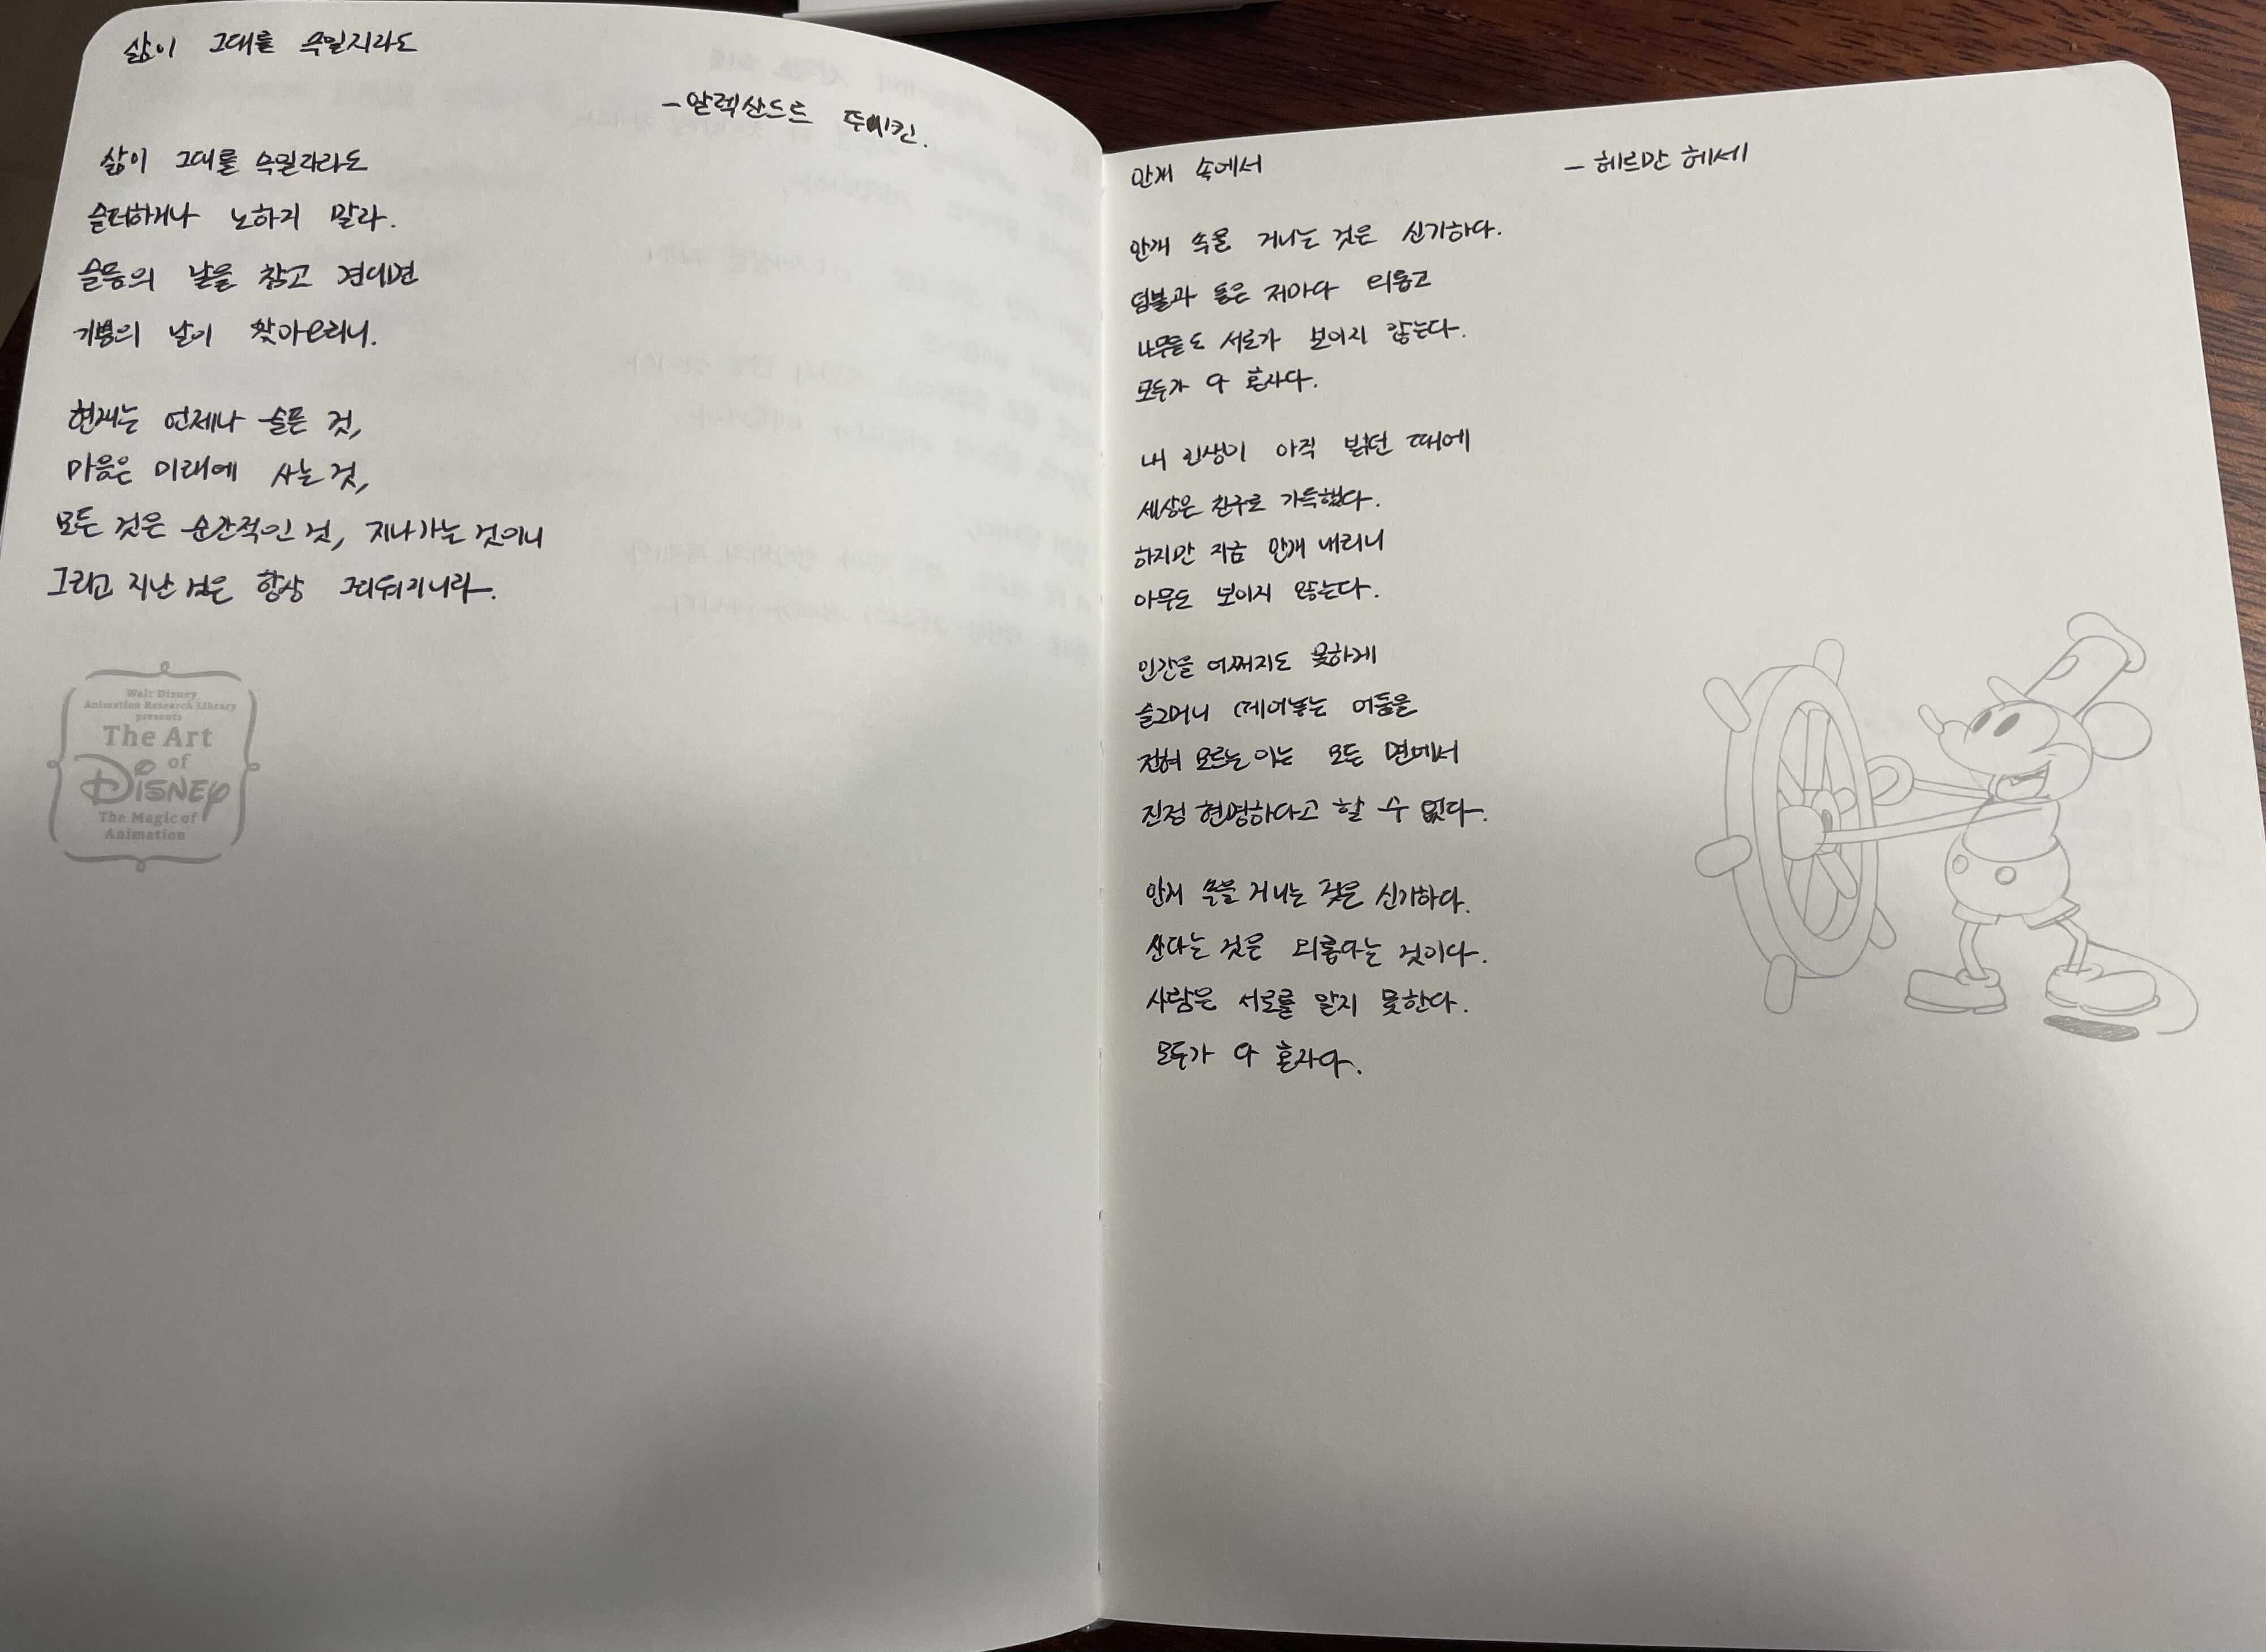 삶이 그대를 속일지라도
-알렉산드르 푸시킨.
삶이 그대를 속일지라도
슬퍼하거나 노하지 말라.
슬픔의 날을 참고 견디면
기쁨의 날이 찾아오리니.
현재는 언제나 슬픈 것,
마음은 미래에 사는 것,
모든 것은 순간적인 것, 지나가는 것이니
그리고 지난 것은 항상 그리워지니라.
Walt Disney
Animation Research Library
presents
The Art
of
Disney
The Magic of
Animation
안개 속에서 - 헤르만 헤세
안개 속을 거니는 것은 신기하다.
덤불과 돌은 저마다 외롭고
나무들도 서로가 보이지 않는다.
모두가 다 혼자다.
내 인생이 아직 밝던 때에
세상은 친구로 가득했다.
하지만 지금 안개 내리니
아무도 보이지 않는다.
인간을 어쩌지도 못하게
슬그머니 떼어놓는 어둠을
전혀 모르는 이는 모든 면에서
진정 현명하다고 할 수 없다.
안개 속을 거니는 것은 신기하다.
산다는 것은 외롭다는 것이다.
사람은 서로를 알지 못한다.
모두가 다 혼자다.